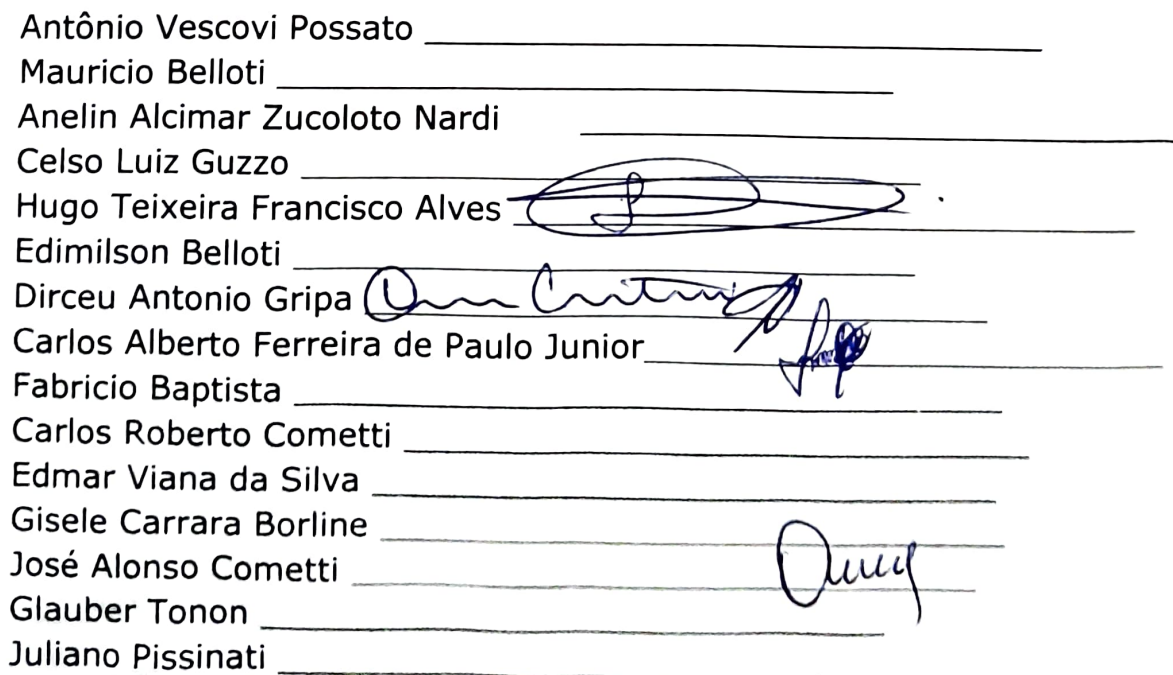 Antônio Vescovi Possato
Mauricio Belloti
Anelin Alcimar Zucoloto Nardi
Celso Luiz Guzzo
Hugo Teixeira Francisco Alves
Edimilson Belloti
Dirceu Antonio Gripa
Carlos Alberto Ferreira de Paulo Junior
Fabricio Baptista
Carlos Roberto Cometti
Edmar Viana da Silva
Gisele Carrara Borline
José Alonso Cometti
Glauber Tonon
Juliano Pissinati